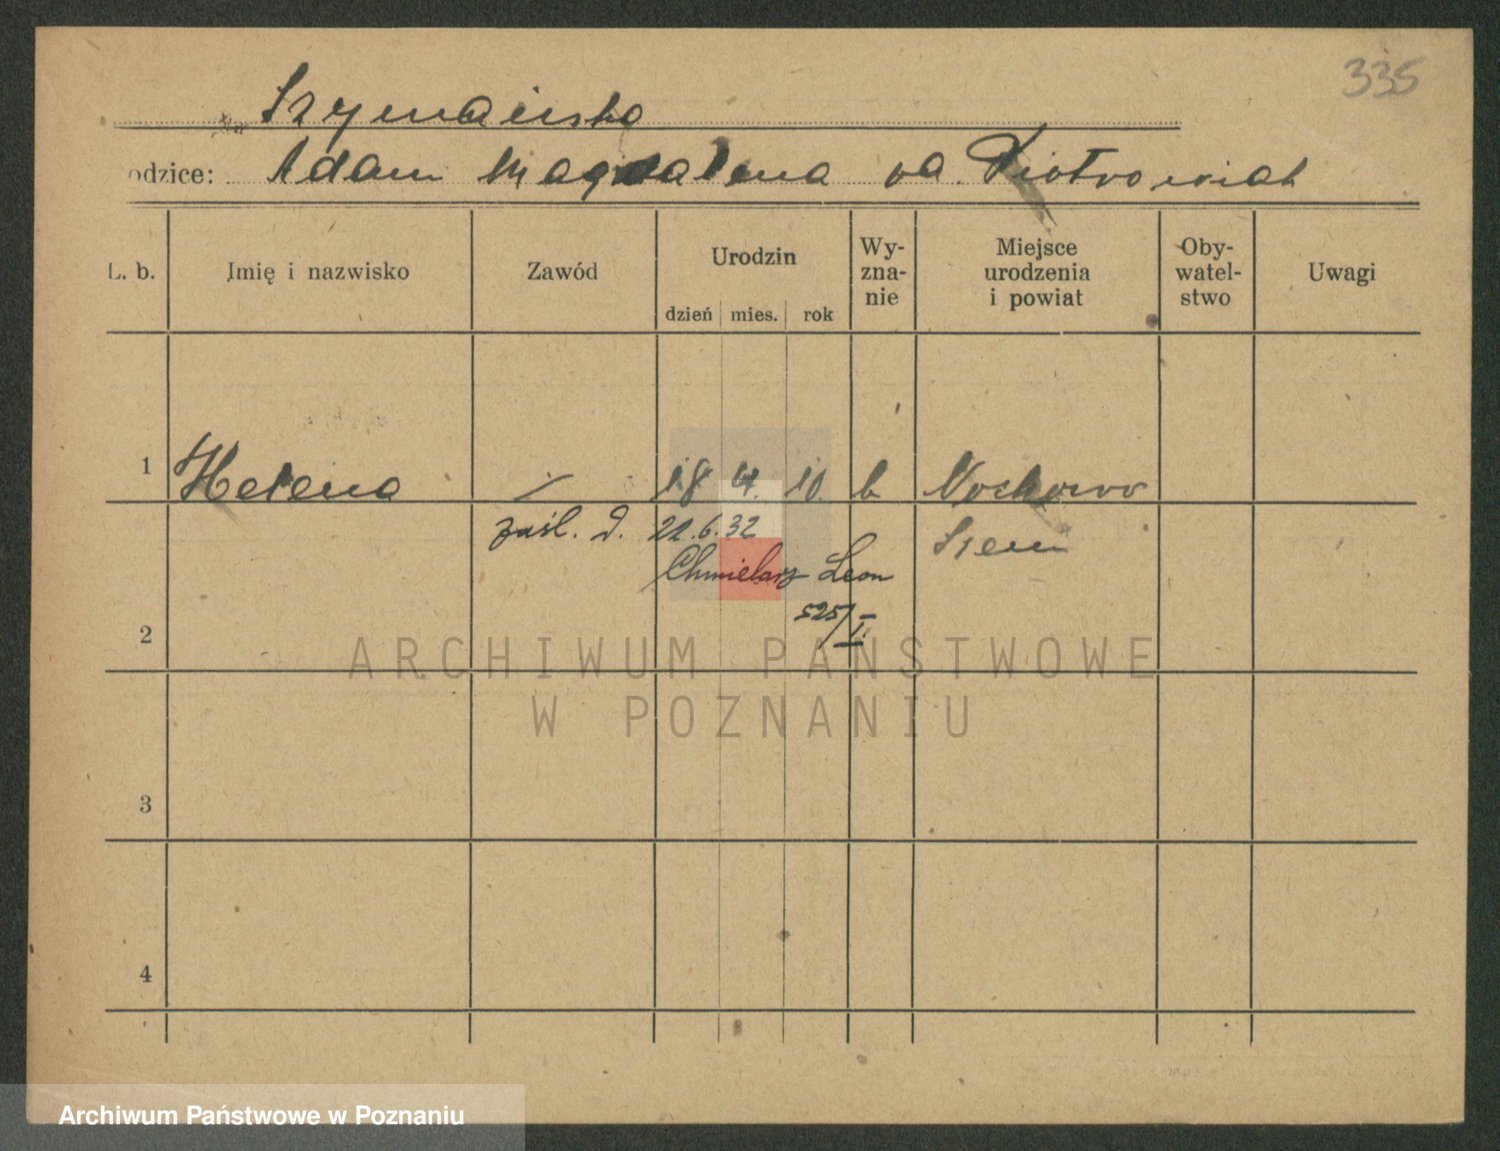 335
Szymańska
odzice: Adam Magdalena va. Piotrowiak
L. b. Imię i nazwisko Zawód Urodzin dzień mies. rok Wy-zna-nie Miejsce urodzenia i powiat Oby-watel-stwo Uwagi
1 Helena / 18 4. 10 k Nochowo
zaśl. d. 21.6.32 Śrem
Chmielarz Leon
2 525/II.
ARCHIWUM PAŃSTWOWE
W POZNANIU
3
4
Archiwum Państwowe w Poznaniu